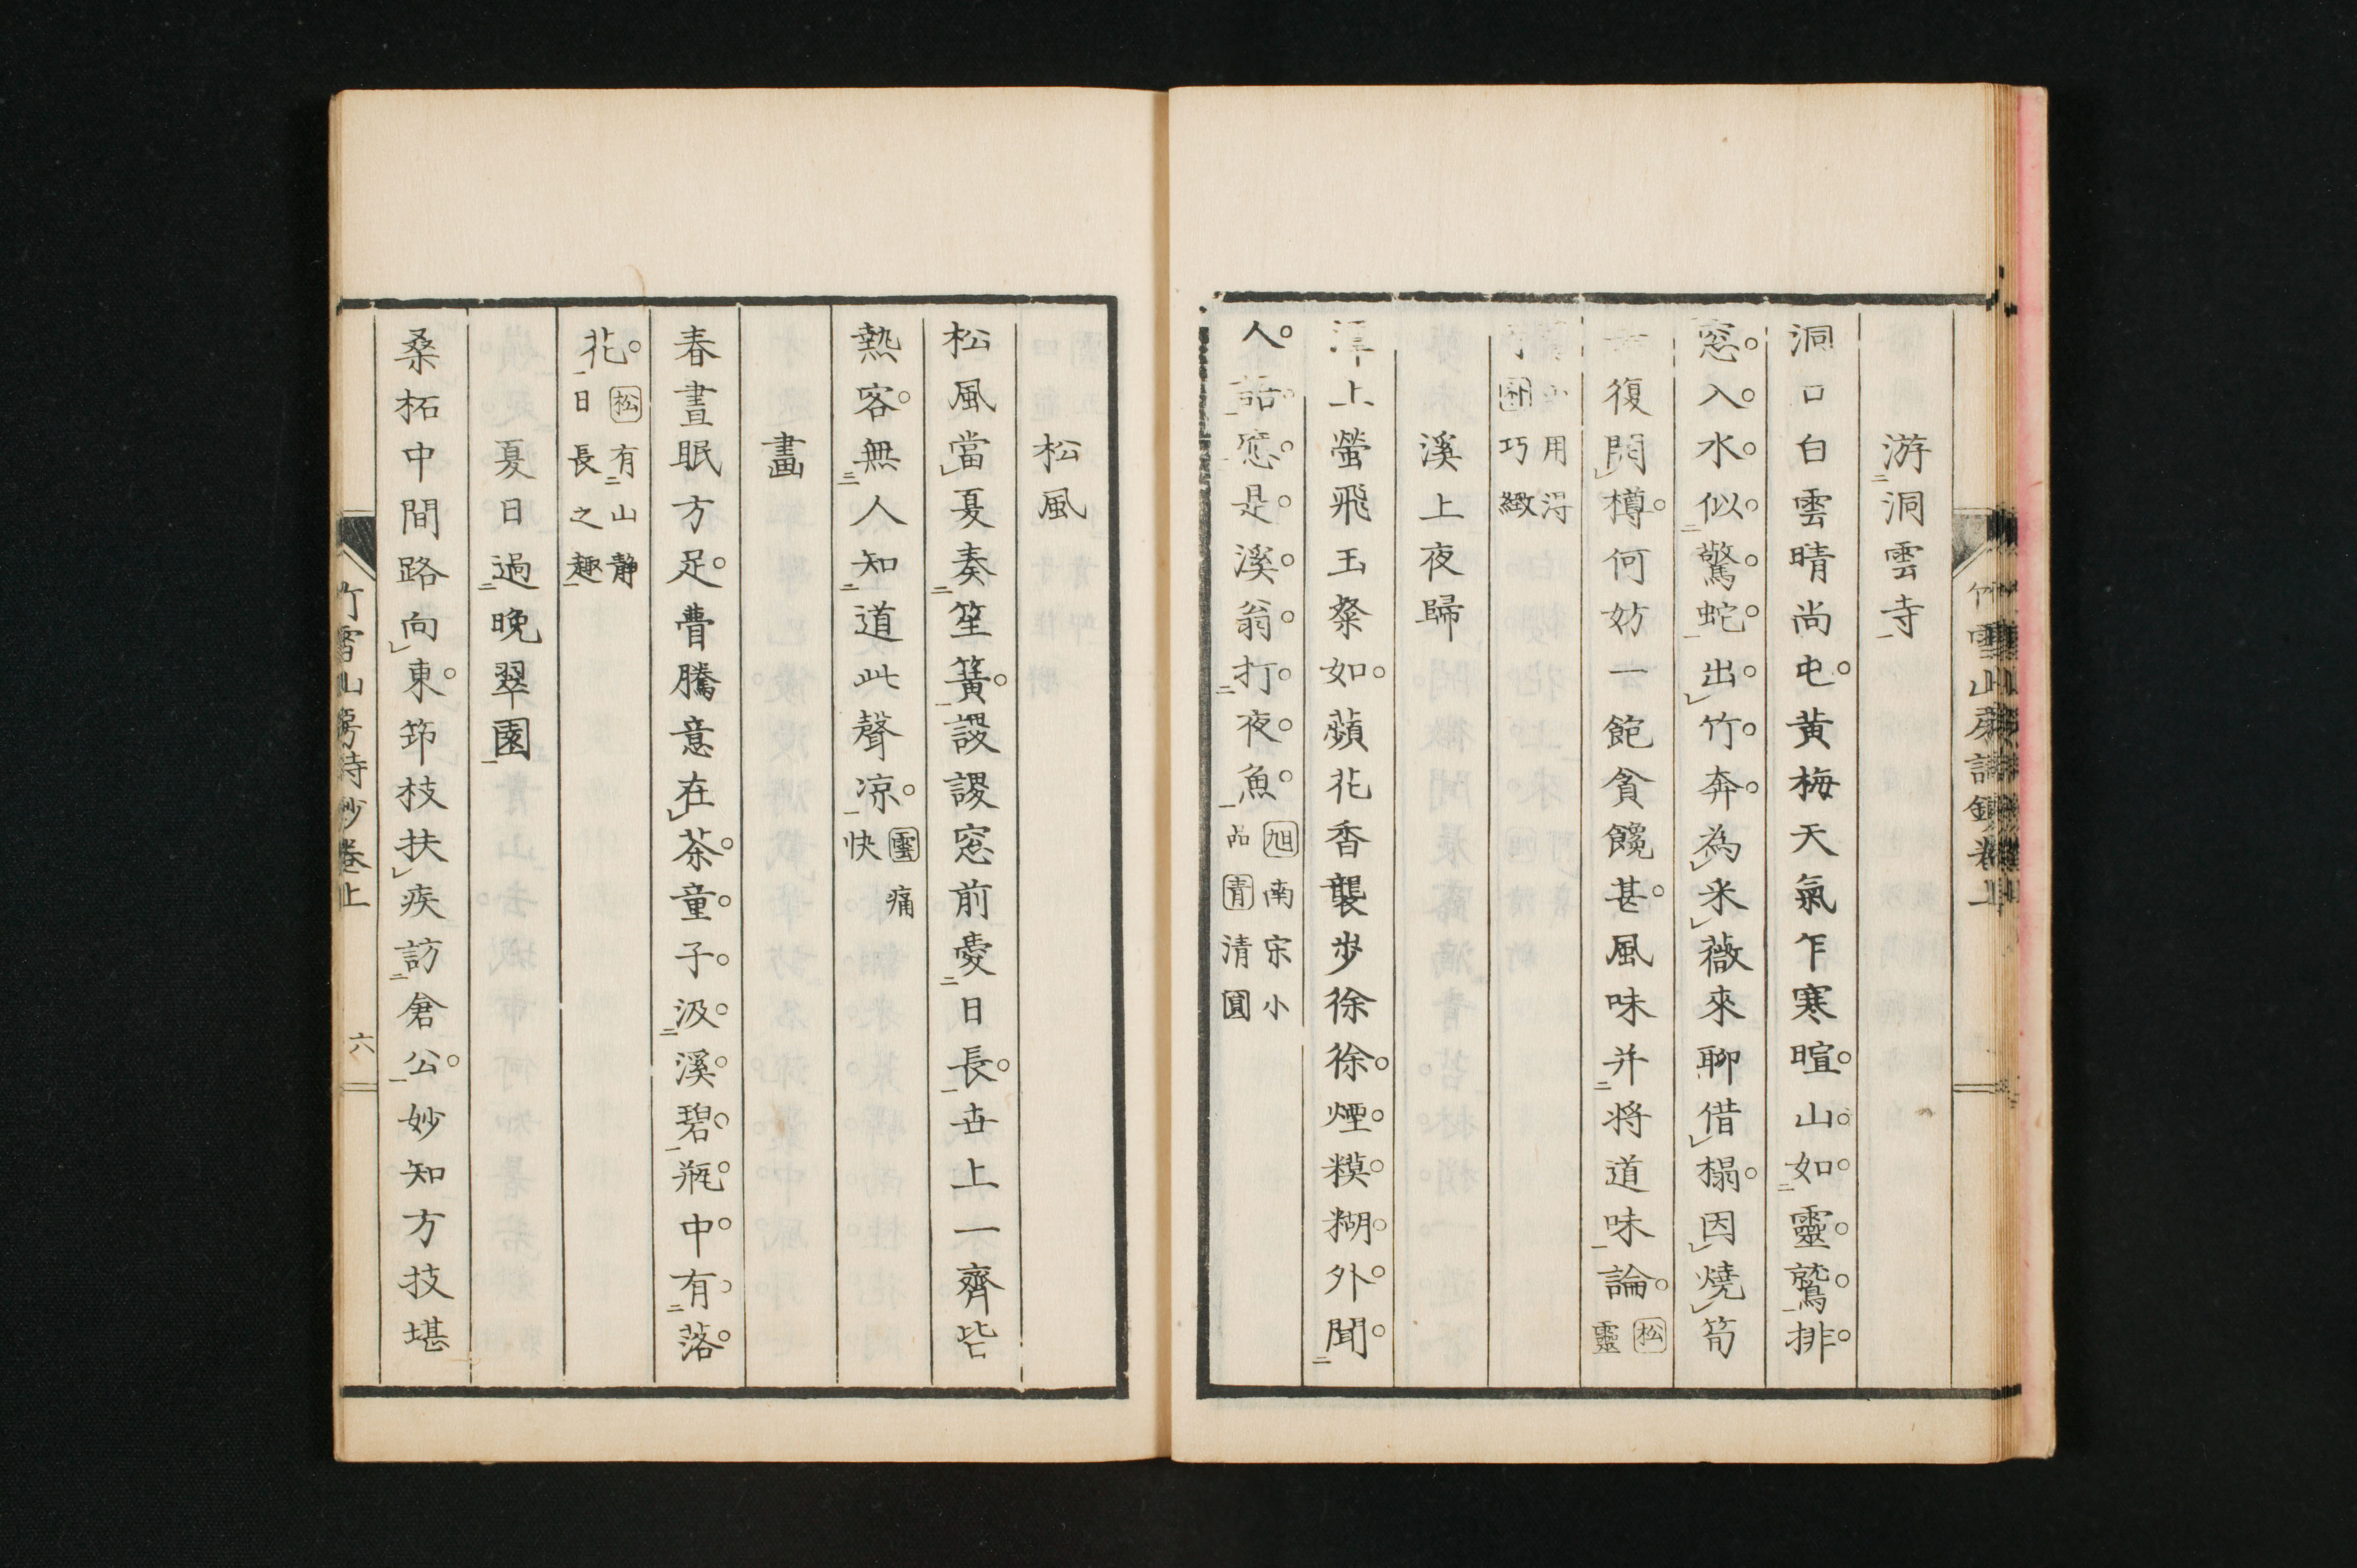 游洞雲寺
洞口白雲晴尚屯黃梅天氣乍寒暄山如靈鷲排
窓入水似驚蛇出竹奔為采薇來聊借榻因燒筍
復開樽何妨一飽貪饞甚風味并將道味論 松 靈
用得巧緻
溪上夜歸
潭上螢飛玉粲如蘋花香襲步徐徐煙糢糊外聞
人語應是溪翁打夜魚 旭 南宋小品 青 清圓
松風
松風當戛奏笙簧謖謖窓前憂日長世上一齊呰
熱客無人知道此聲凉 雲 痛快
畫
春晝眠方足瞢騰意在茶童子汲溪碧瓶中有落
花 松 有山靜日長之趣
夏日過晚翠園
桑柘中間路向東笻枝扶疾訪倉公妙知方技堪
竹雪山房詩鈔卷上
六